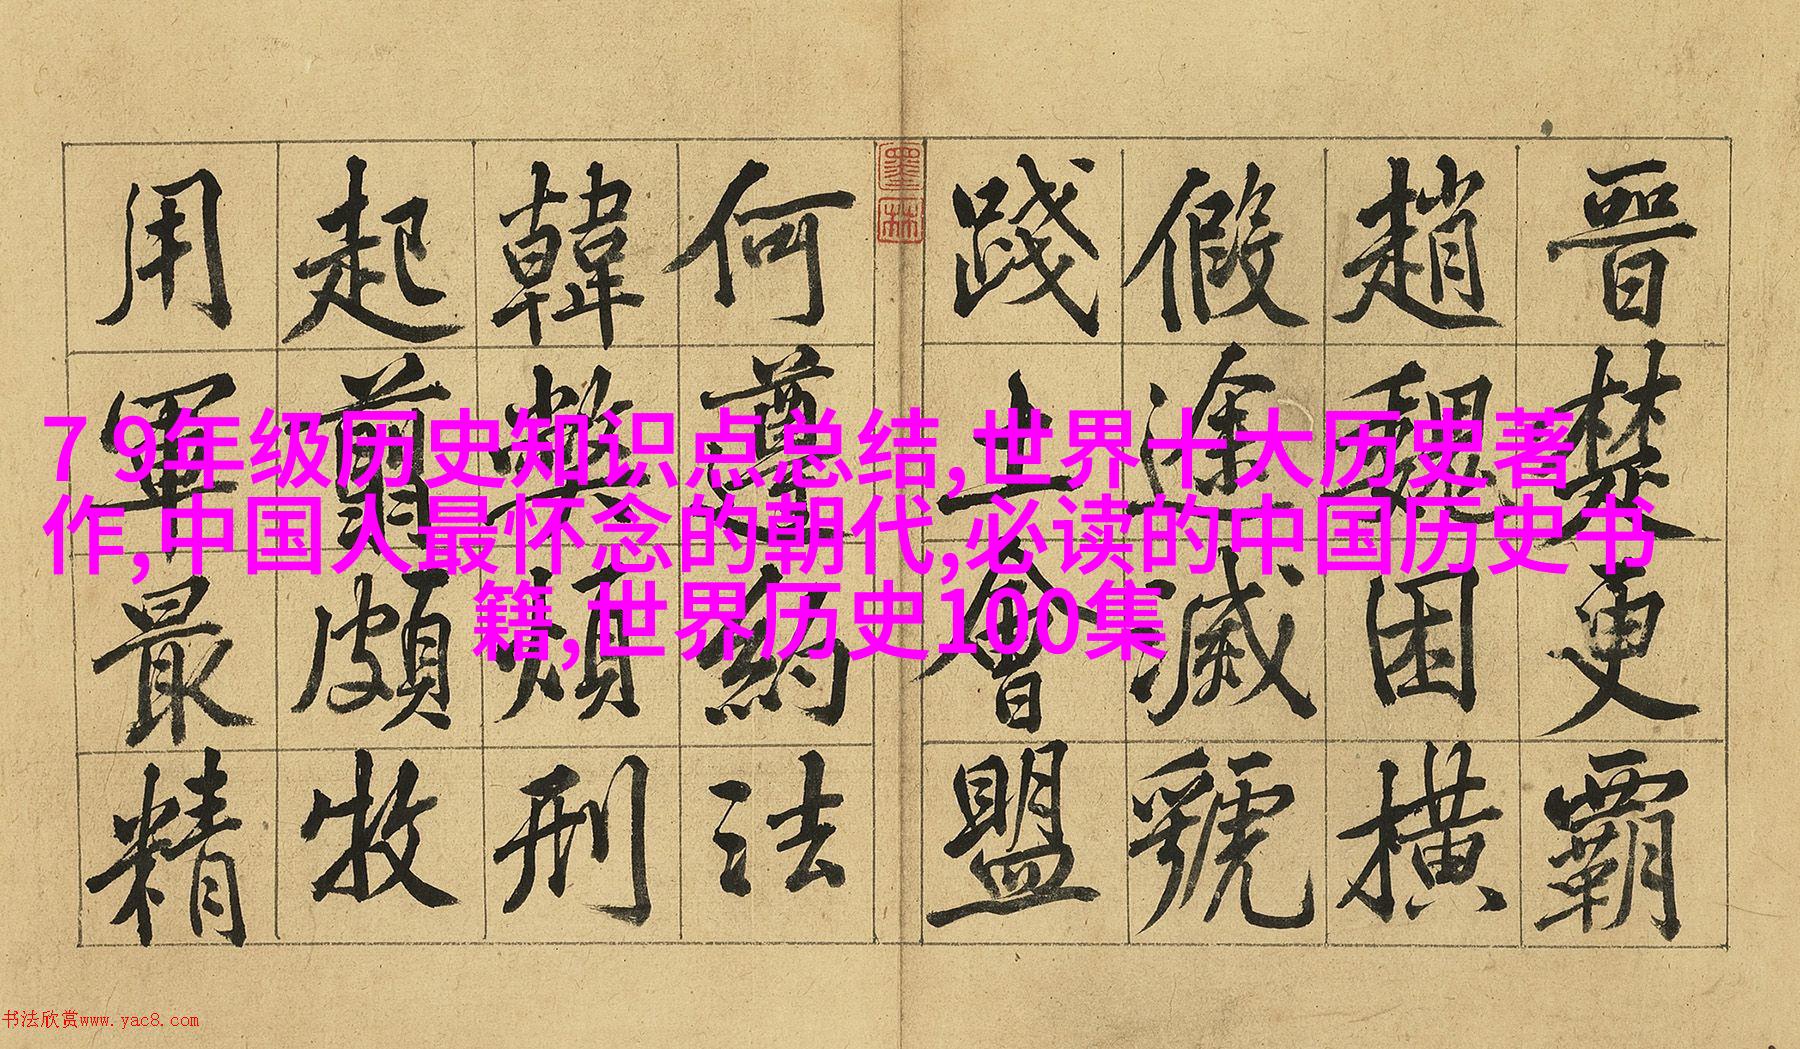 晉楚更霸
趙魏困橫
假途滅虢
踐土會盟
何遵約法
韓弊煩刑
起翦頗牧
用軍最精
墨林
7 9年级历史知识点总结,世界十大历史著
作,中国人最怀念的朝代,必读的中国历史书
籍,世界历史100集
书法欣赏www.yac8.com